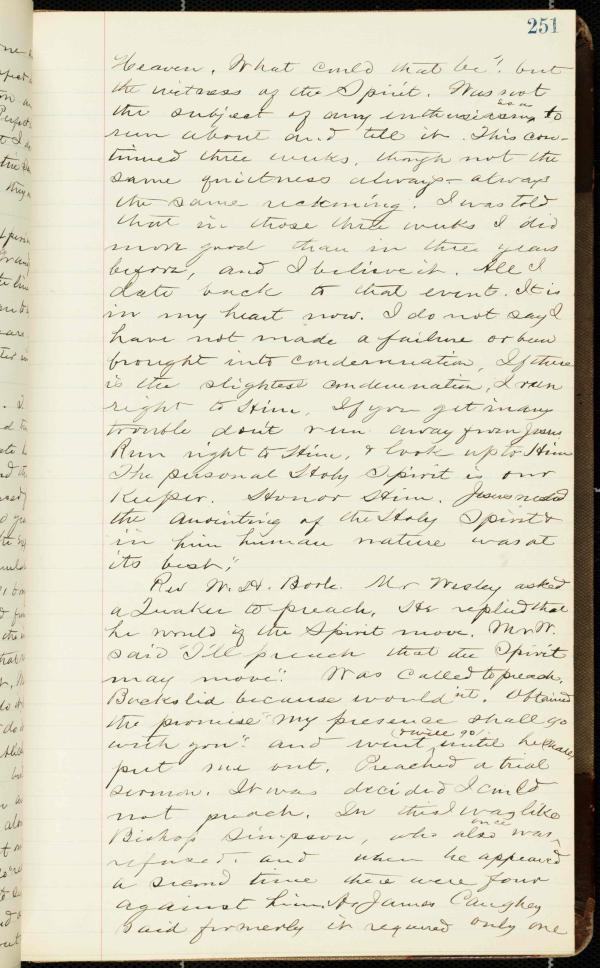 251
Heaven. What could that be"? but
the witness of the Spirit. Was not
the subject of any enthusiasm so as to
run about and tell it. This con-
tinued three weeks, though not the
same quietness always - always
the same reckoning. I was told
that in those three weeks I did
more good than in three years
before, and I believe it. All I
date back to that event. It is
in my heart now. I do not say I
have not made a failure or been
brought into condemnation, If there
is the slightest condemnation, I run
right to Him. If you get in any
trouble don't run away from Jesus
Run right to Him, & look up to Him
The personal Holy Spirit is our
Keeper. Honor Him. Jesus needed
the anointing of the Holy Spirit &
in him human nature was at
its best",
Rev W. H. Boole. Mr Wesley asked
a Quaker to preach. He replied that
he would if the Spirit move. Mr. W.
said "I'll preach that the Spirit
may move". Was called to preach.
Backslid because wouldn't. Obtained
the promise "my presence shall go
with you". and went & will go until he
put me out. Preached a trial
sermon. It was decided I could
not preach. In this I was like
Bishop Simpson, who also once was
refused. and when he appeared
a second time there were four
against him. As James Caughey
said formerly it required only one